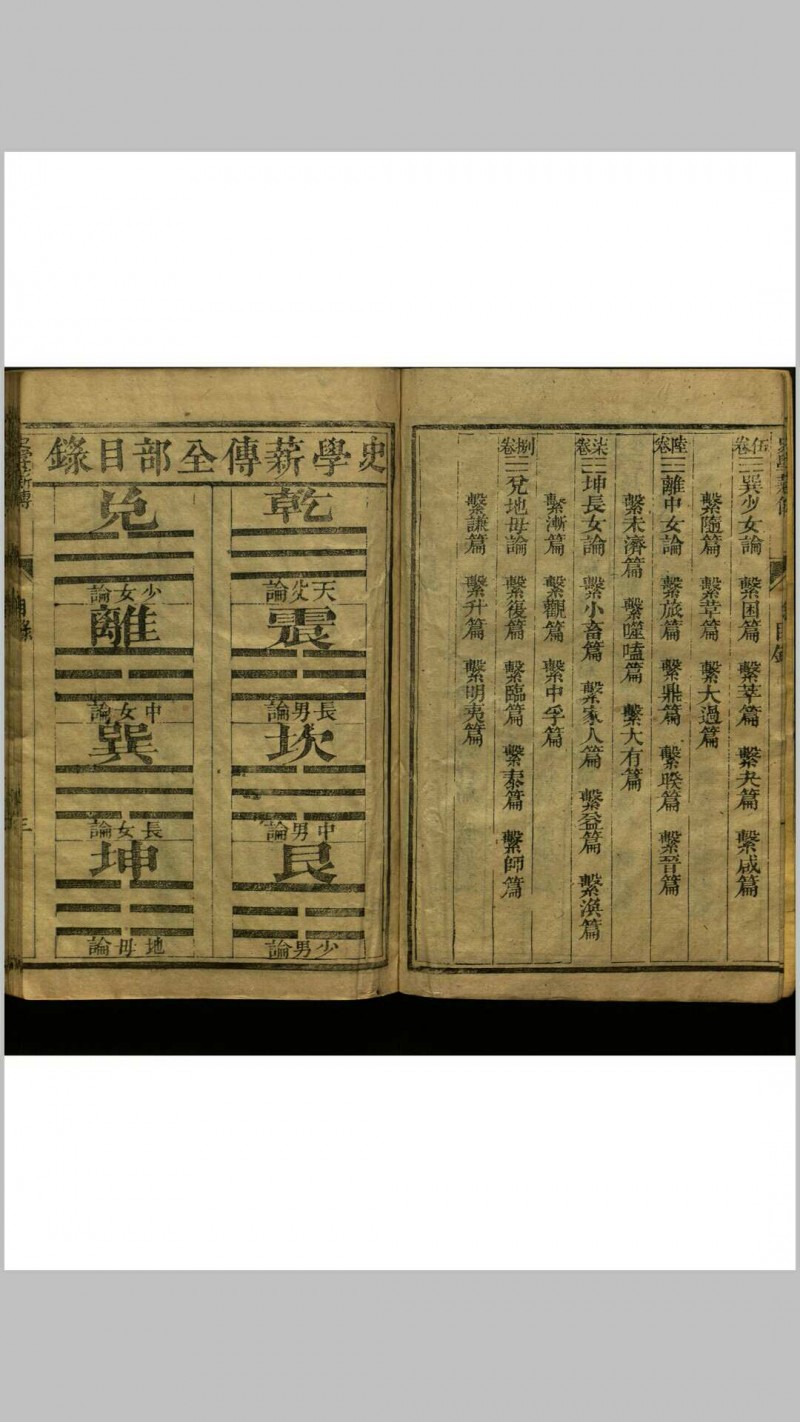 伍卷☱巽少女論　繫困篇　繫萃篇　繫夬篇　繫咸篇
繫隨篇　繫革篇　繫大過篇
陸卷☲離中女論　繫旅篇　繫鼎篇　繫睽篇　繫晉篇
繫未濟篇　繫噬嗑篇　繫大有篇
柒卷☴坤長女論　繫小畜篇　繫家人篇　繫益篇　繫渙篇
繫漸篇　繫觀篇　繫中孚篇
捌卷☷兌地母論　繫復篇　繫臨篇　繫泰篇　繫師篇
繫謙篇　繫升篇　繫明夷篇
目錄
史學薪傳全部目錄
乾
天父論
震
長男論
坎
中男論
艮
少男論
兌
少女論
離
中女論
巽
長女論
坤
地母論
目錄
三